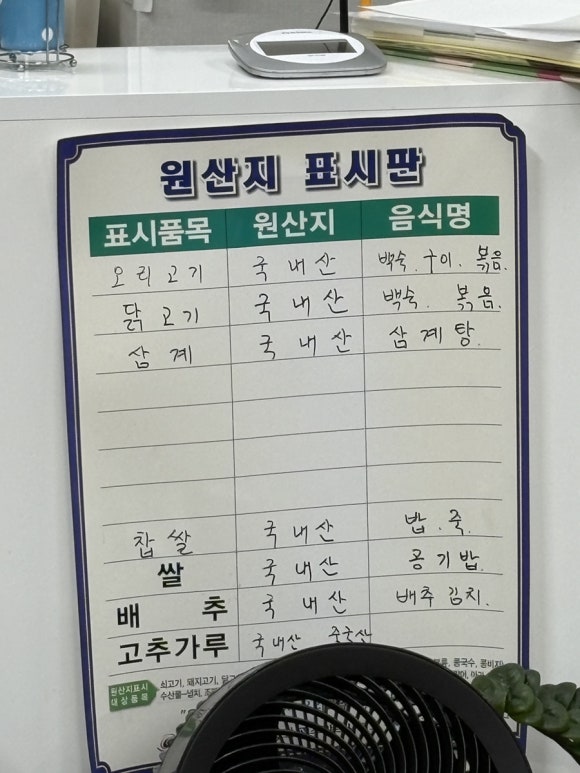 원산지 표시판
표시품목 원산지 음식명
오리고기 국내산 백숙. 구이. 볶음.
닭고기 국내산 백숙. 볶음.
삼계 국내산 삼계탕.
찹쌀 국내산 밥. 죽.
쌀 국내산 공기밥.
배추 국내산 배추김치.
고추가루 국내산 중국산
원산지표시 쇠고기, 돼지고기, 콩국수, 콩비지
대상품목 수산물-넙치,